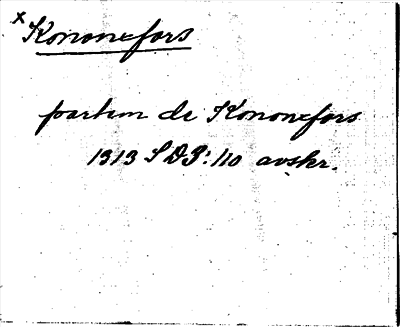 x Kononefors
partem de Kononefors
1313 SDP: 110 avskr.